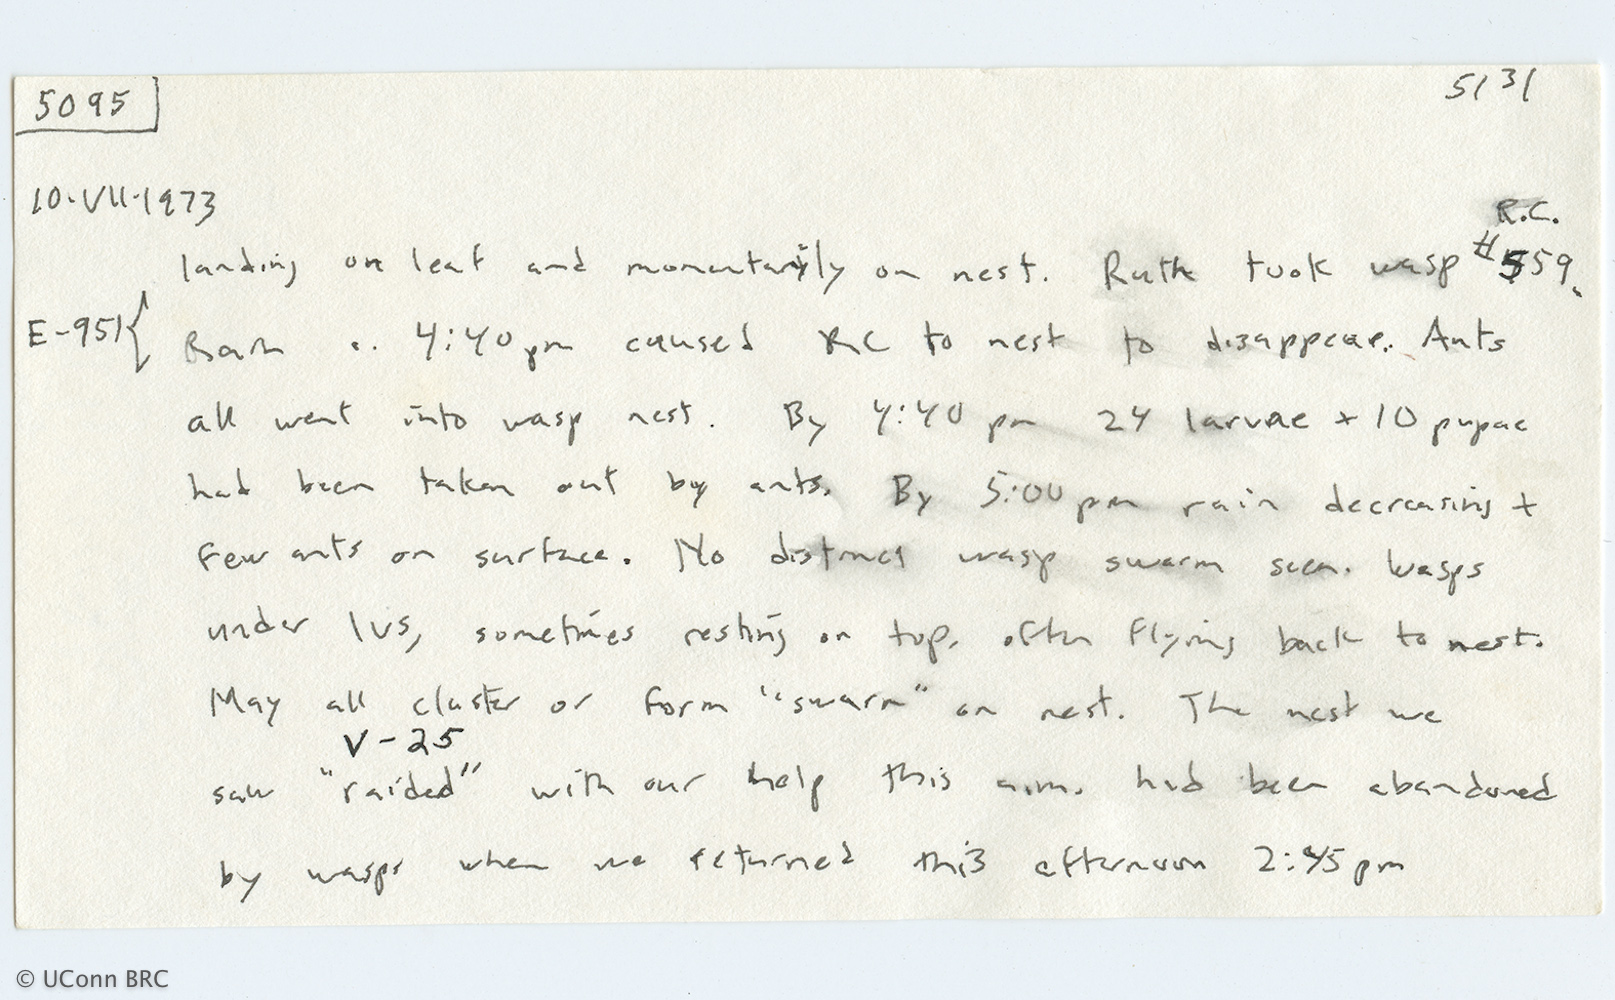 5095
5131
10.VII.1973
R.C.
landing on leaf and momentarily on nest. Ruth took wasp #559.
E-951{
Rain c. 4:40pm caused RC to nest to disappear. Ants
all went into wasp nest. By 4:40 pm 24 larvae + 10 pupae
had been taken out by ants. By 5:00pm rain decreasing +
few ants on surface. No distinct wasp swarm seen. Wasps
under lvs, sometimes resting on top, often flying back to nest.
May all cluster or form "swarm" on nest. The nest we
V-25
saw "raided" with our help this a.m. had been abandoned
by wasps when we returned this afternoon 2:45pm
© UConn BRC